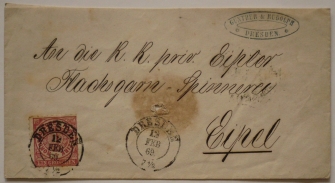 DRESDEN
An die K. K. priv. Eipler
Flachsgarn-Spinnerei
Eipel
DRESDEN
13
FEB
69
DRESDEN
13
FEB
69